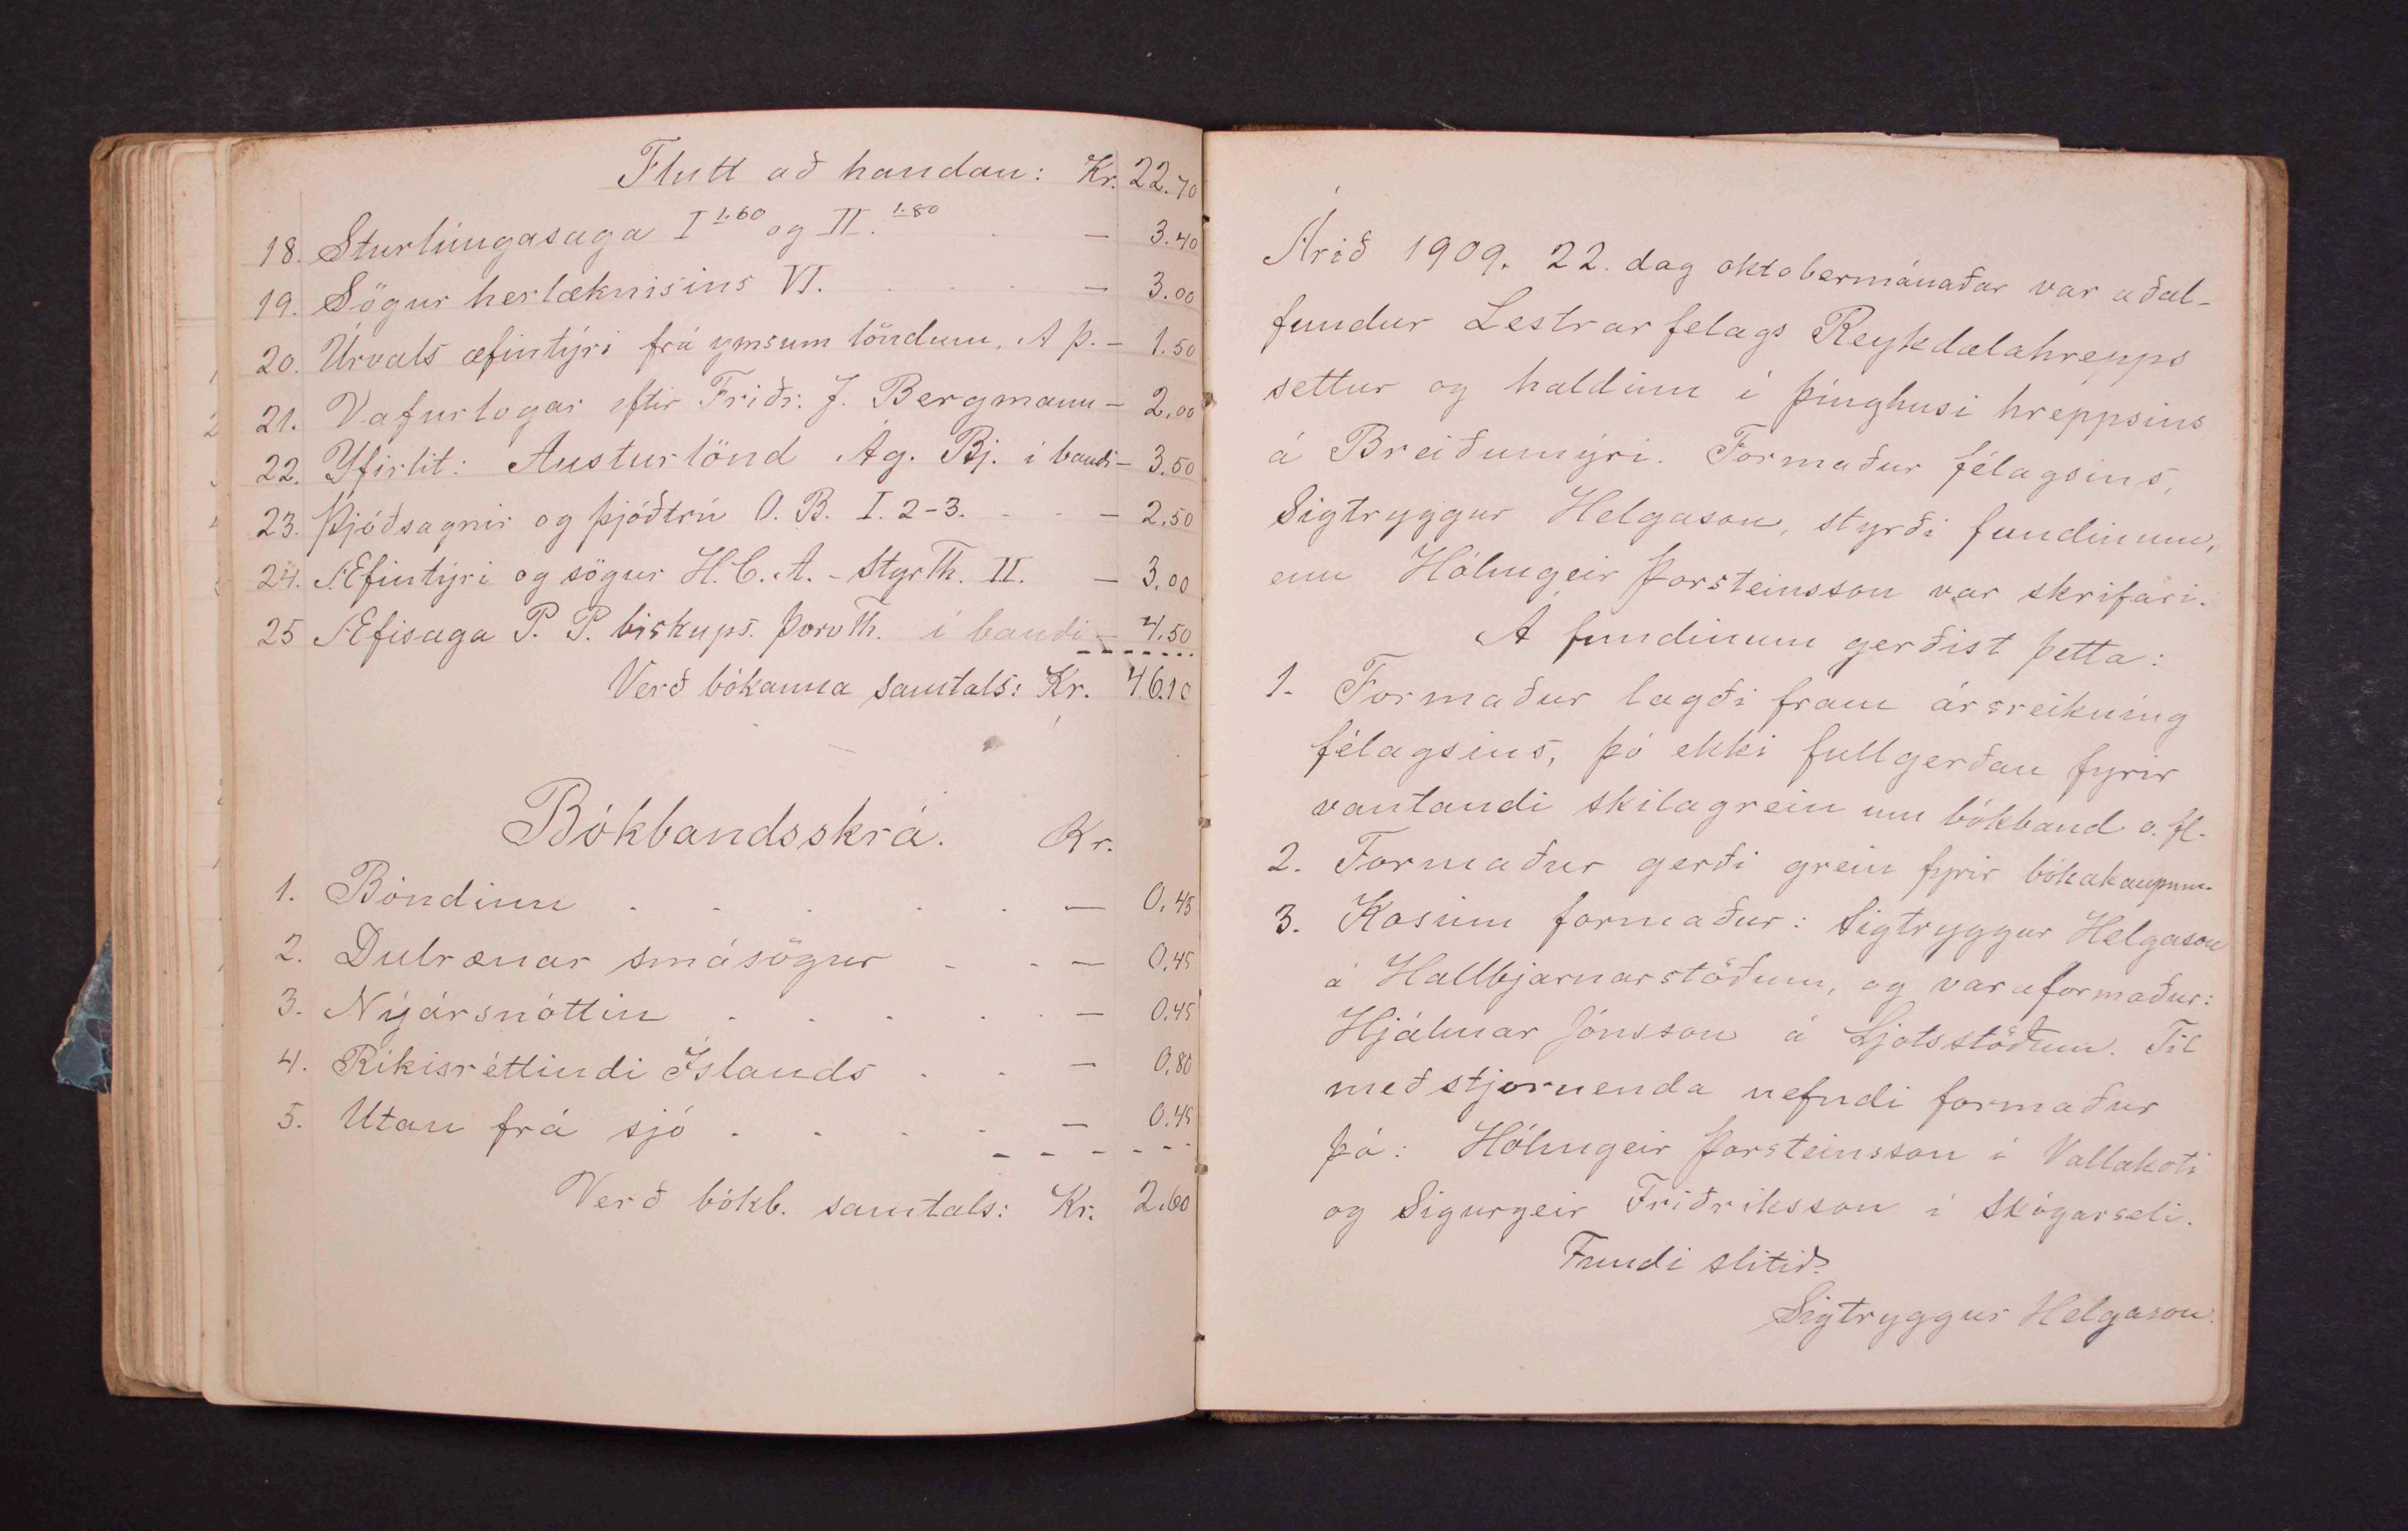 Flutt að handan: Kr. 22.70
18. Sturlúngasaga I 1.60 og II. 1.80 . — 3.40
19. Sögur herlæknisins VI. . . . — 3.00
20. Úrvals æfintýri frá ymsum löndum, A þ. — 1.50
21. Vafurlogar eftir Friðr. J. Bergmann — 2.00
22. Yfirlit: Austurlönd Ág. Bj. í bandi — 3.50
23. Þjóðsagnir og þjóðtrú O. B. I. 2-3. - - — 2.50
24. Æfintýri og sögur H. C. A. - Stgr Th. II. — 3.00
25 Æfisaga P. P. biskups. Þorv Th. í bandi — 4.50
Verð bókanna samtals: Kr. 46.10
Bókbandsskrá. Kr.
1. Bóndinn . . . . . — 0.45
2. Dulrænar smásögur - - — 0.45
3. Nýársnóttin . . . . . — 0.45
4. Ríkisréttindi Íslands . . — 0.80
5. Utan frá sjó . . . . — 0.45
Verð bókb. samtals: Kr. 2.60
Árið 1909. 22. dag oktobermánaðar var aðal-
fundur Lestrarfelags Reykdælahrepps
settur og haldinn í þínghusi hreppsins
á Breiðumýri. Formaður félagsins,
Sigtryggur Helgason, styrði fundinum,
enn Hólmgeir Þorsteinsson var skrifari.
Á fundinum gerðist þetta:
1. Formaður lagði fram ársreikníng
félagsins, þó ekki fullgerðan fyrir
vantandi skilagrein um bókband o. fl.
2. Formaður gerði grein fyrir bókakaupum.
3. Kosinn formaður: Sigtryggur Helgason
á Hallbjarnarstöðum, og varaformaður:
Hjálmar Jónsson á Ljotsstöðum. Til
meðstjornenda nefndi formaður
þá: Hólmgeir Þorsteinsson í Vallakoti
og Sigurgeir Friðriksson í Skógarseli.
Fundi slitið.
Sigtryggur Helgason.